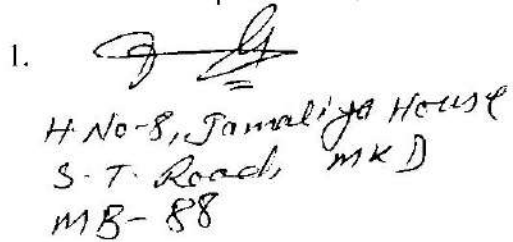 1.
H. No-8, Jamaliya House
S. T. Road, MKD
MB- 88